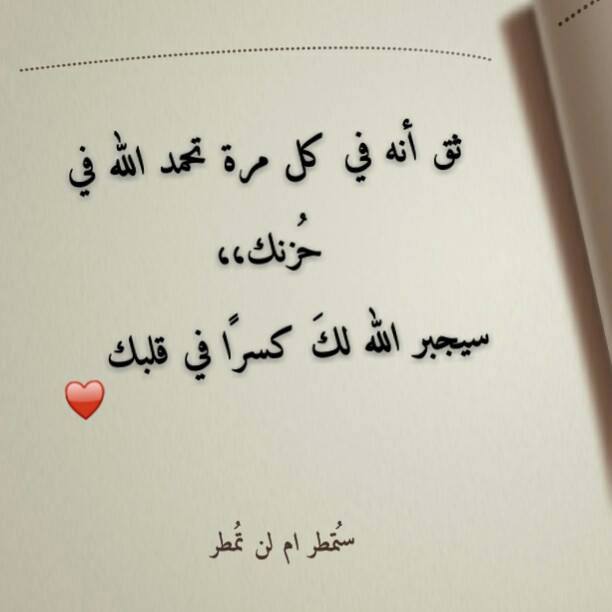 ثق أنه في كل مرة تحمد الله في
حُزنك،،
سيجبر الله لكَ كسرًا في قلبك
ستُمطر ام لن تُمطر